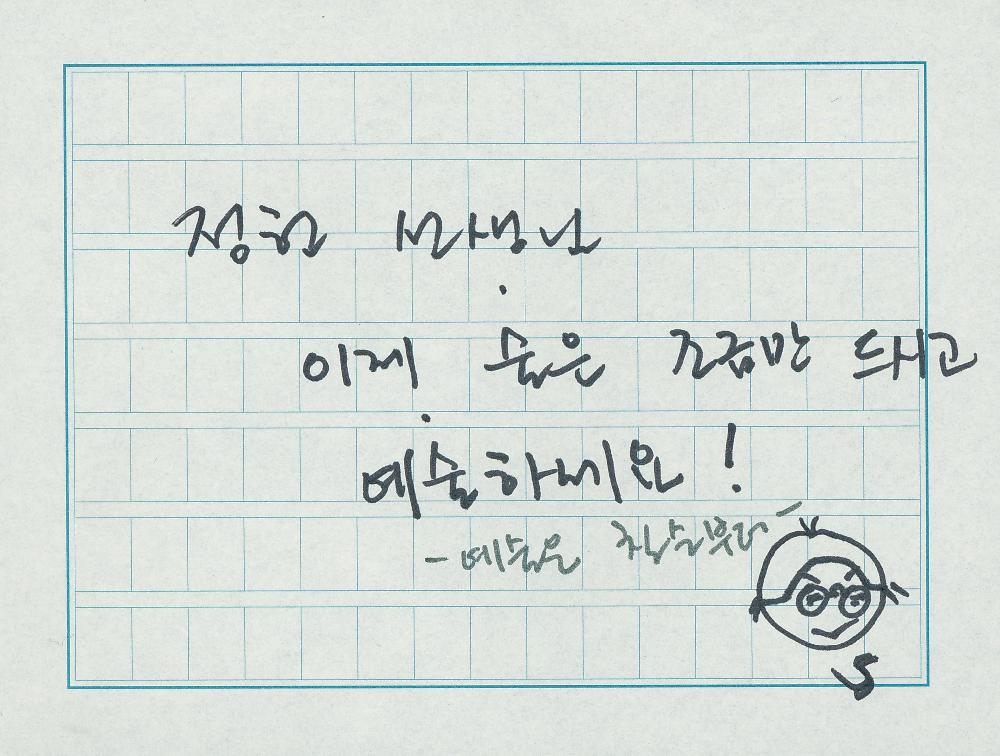 정헌 선생님
이제 술은 조금만 드시고
예술하세요!
- 예술은
S